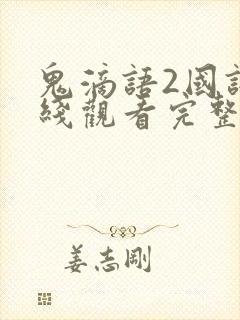 鬼滴語2國語
綫觀看完整
姜志剛